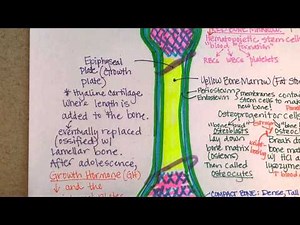 Hematopoietic stem cells
"blood formation"
RBCs WBCs platelets
Epiphyseal
Plate (Growth
plate)
* Hyaline cartilage
where length is
added to the bone.
eventually replaced
(ossified) w/
lamellar bone.
After adolescence,
Growth Hormone (GH)
↓ and the
Yellow Bone Marrow (Fat St
Periosteum
Endosteum
membranes contain
stem cells to make
new bone!
Osteoprogenitor cells
Osteoblasts
lay down
bone matrix
(osteons)
Then called
osteocytes
"bone
Os
Break do
bone ma
w/ H
lysozyme
*COMPACT BONE: Dense, Tall